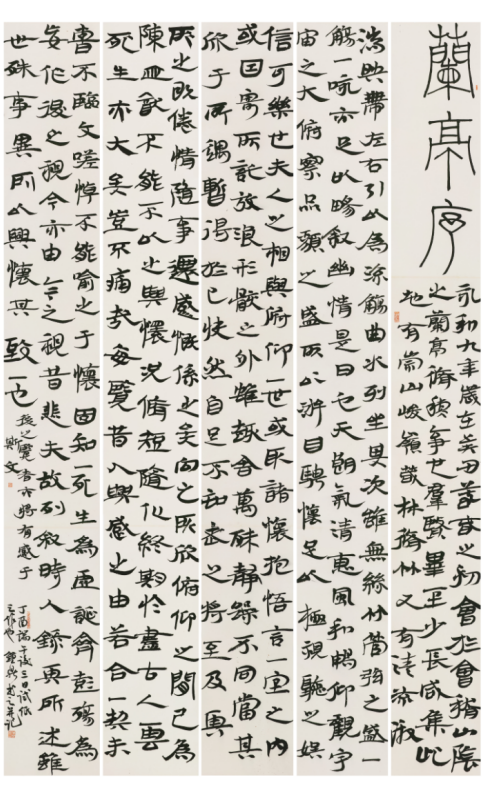 蘭亭序
永和九年歲在癸丑暮春之初會於會稽山陰
之蘭亭脩稧事也羣賢畢至少長咸集此
地有崇山峻嶺茂林脩竹又有清流激
湍映帶左右引以為流觴曲水列坐其次雖無絲竹管弦之盛一
觴一詠亦足以暢敘幽情是日也天朗氣清惠風和暢仰觀宇
宙之大俯察品類之盛所以遊目騁懷足以極視聽之娛
信可樂也夫人之相與俯仰一世或取諸懷抱悟言一室之內
或因寄所託放浪形骸之外雖趣舍萬殊靜躁不同當其
欣于所遇暫得於己快然自足不知老之將至及其
所之既倦情隨事遷感慨係之矣向之所欣俯仰之閒已為
陳迹猶不能不以之興懷況脩短隨化終期於盡古人云
死生亦大矣豈不痛哉每覽昔人興感之由若合一契未
嘗不臨文嗟悼不能喻之于懷固知一死生為虛誕齊彭殤為
妄作後之視今亦由今之視昔悲夫故列敘時人錄其所述雖
世殊事異所以興懷其致一也後之覽者亦將有感于
斯文
丁酉端午後三日試紙
之作也并記